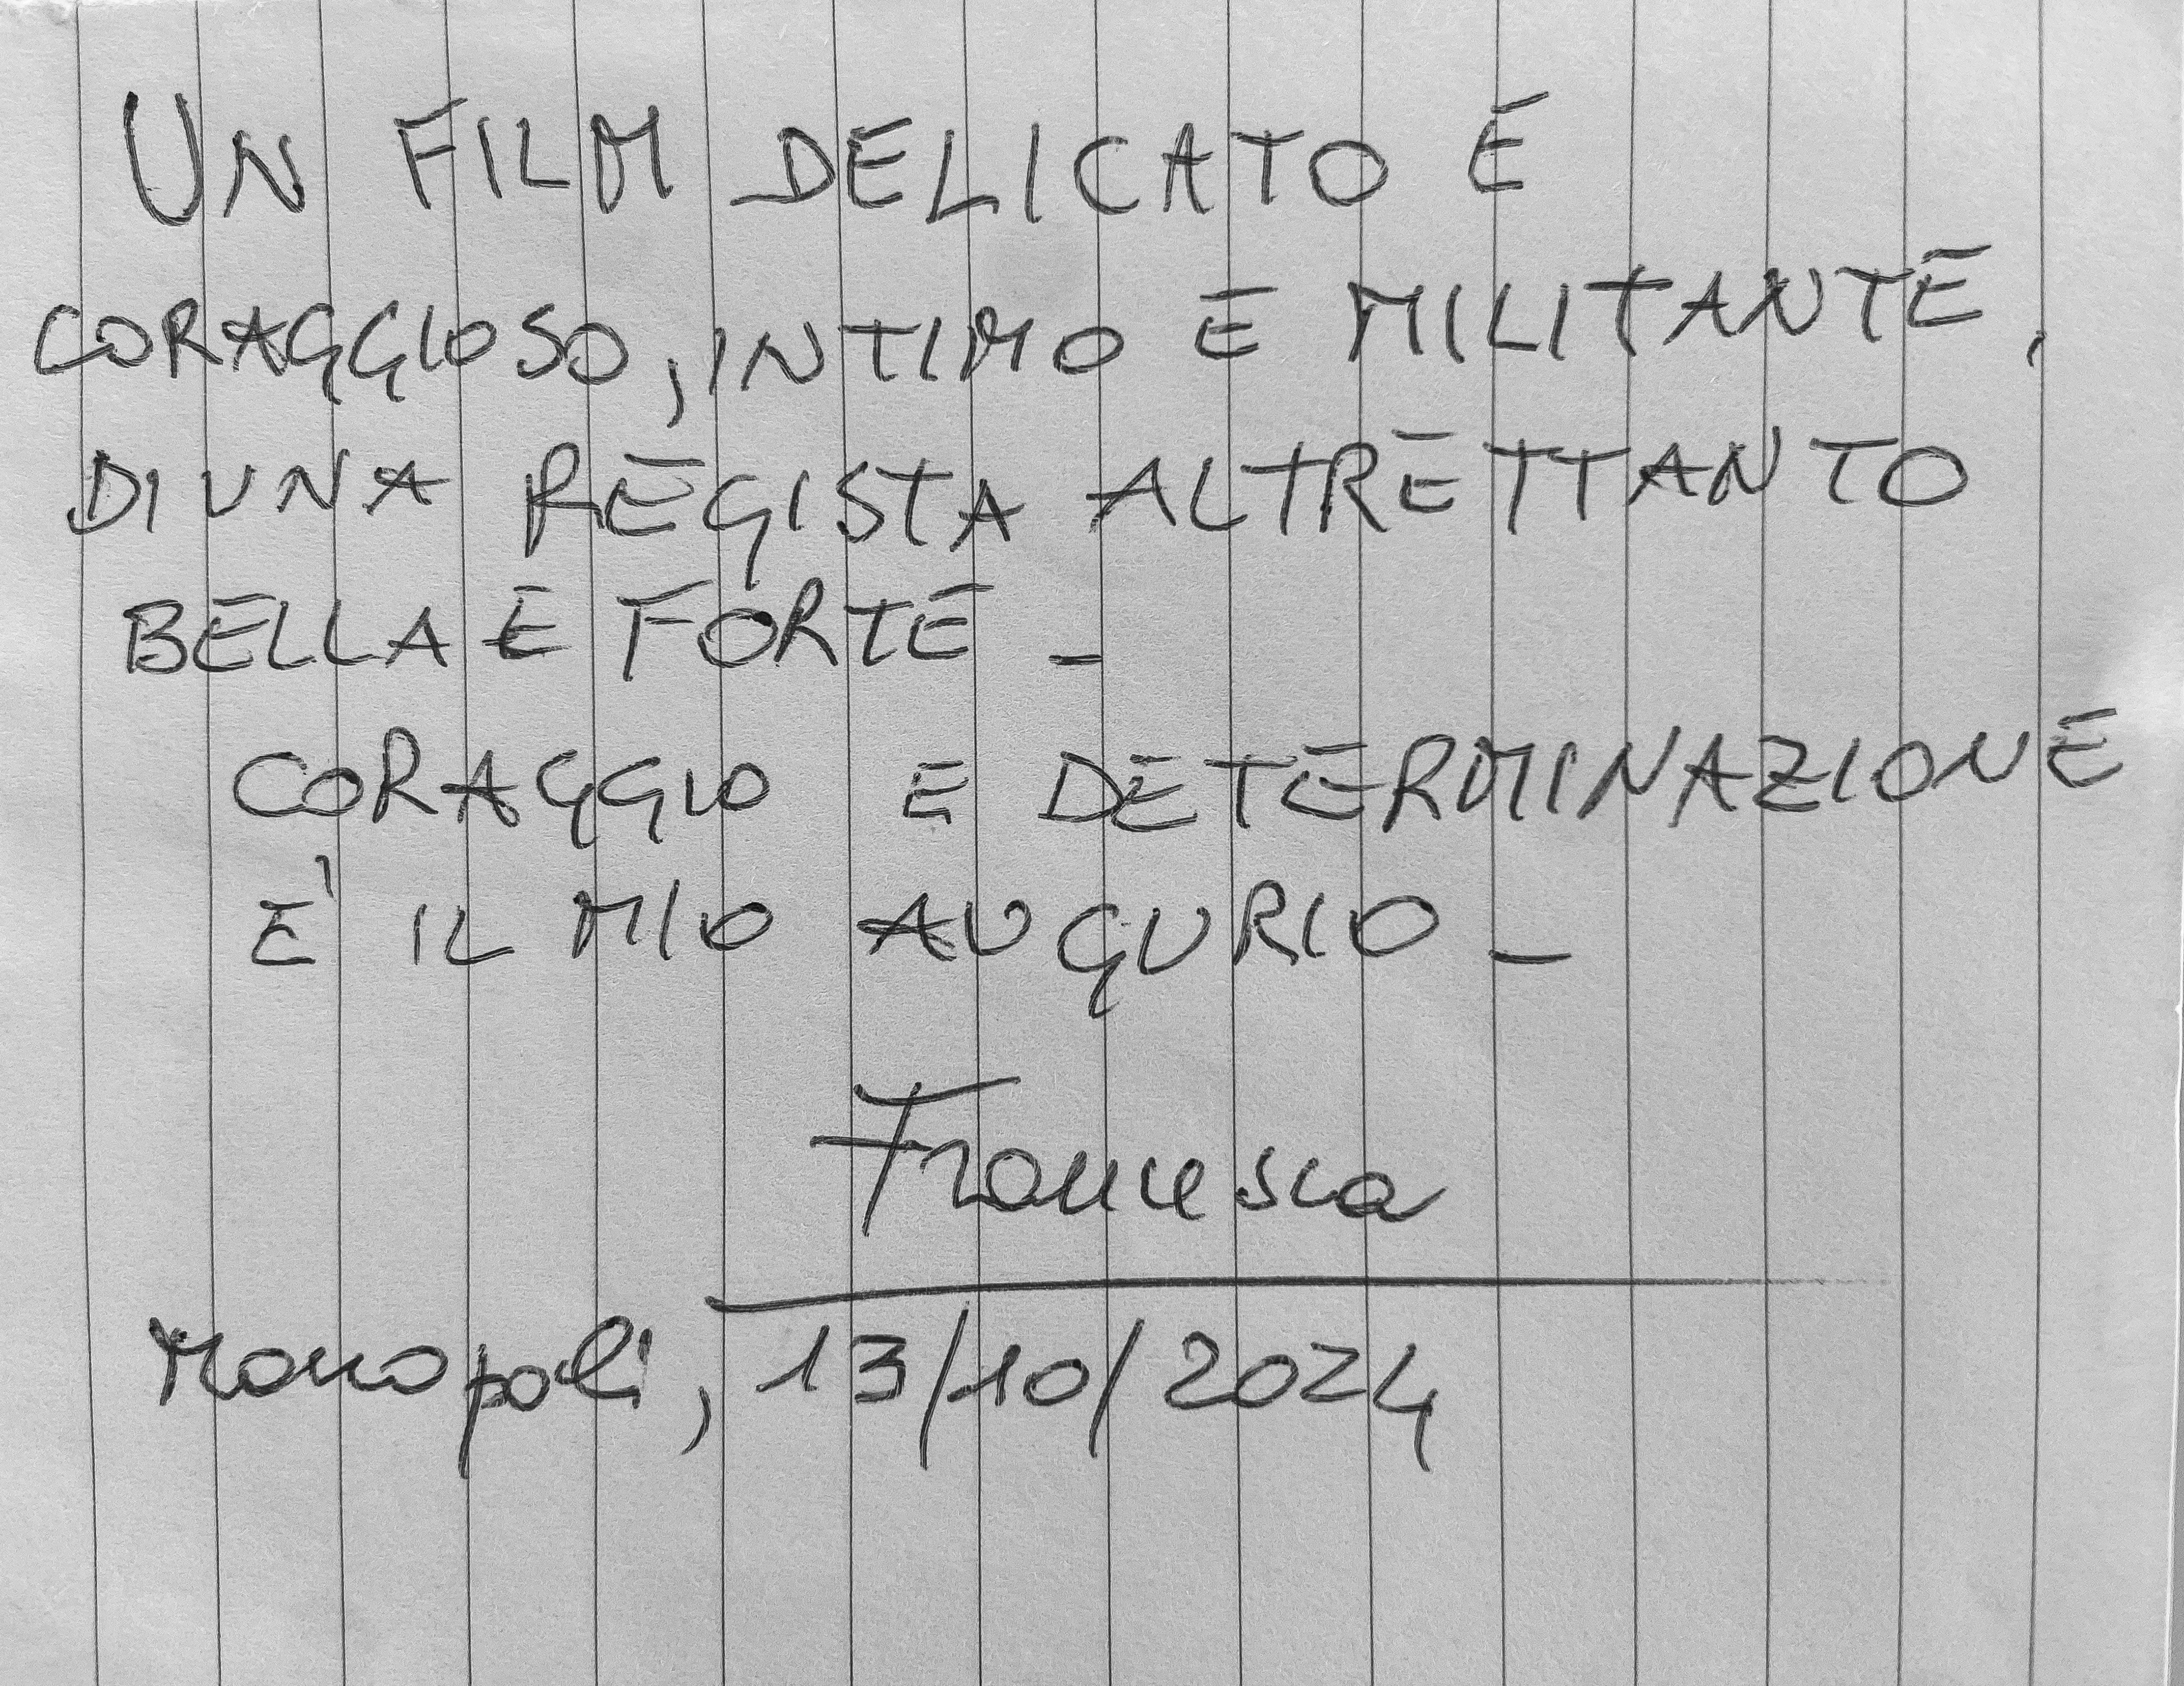 UN FILM DELICATO E
CORAGGIOSO, INTIMO E MILITANTE,
DI UNA REGISTA ALTRETTANTO
BELLA E FORTE -
CORAGGIO E DETERMINAZIONE
E' IL MIO AUGURIO -
Francesca
Monopoli, 13/10/2024